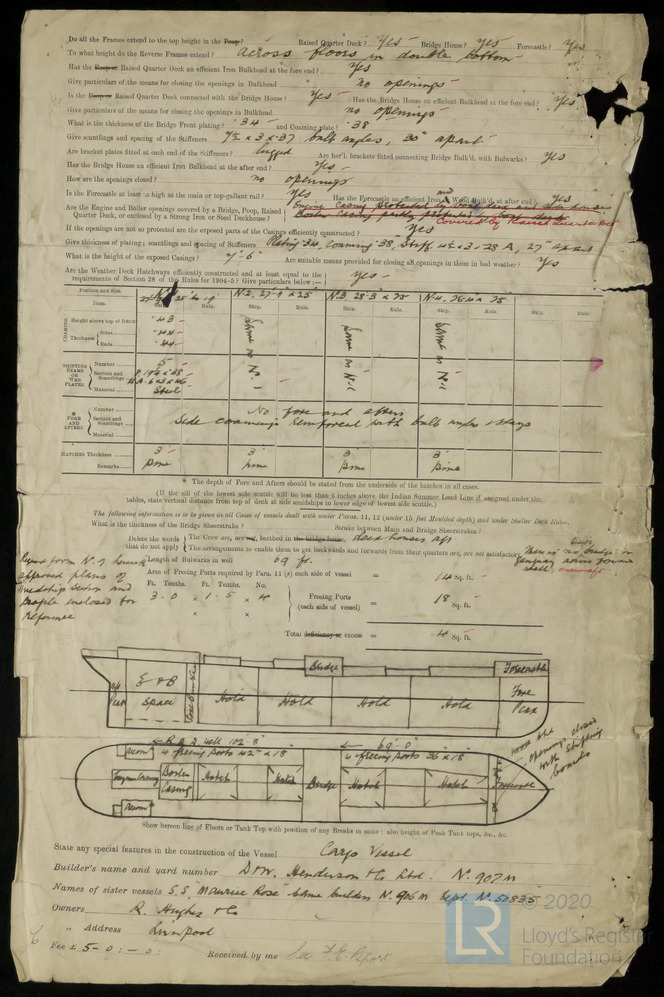 Do all the Frames extend to the top height in the Poop? Raised Quarter Deck? Yes Bridge House? Yes Forecastle? Yes
To what height do the Reverse Frames extend? across floors in double bottom
Has the Poop or Raised Quarter Deck an efficient Iron Bulkhead at the fore end? Yes
Give particulars of the means for closing the openings in Bulkhead no openings
Is the Poop or Raised Quarter Deck connected with the Bridge House? Yes Has the Bridge House an efficient Bulkhead at the fore end? Yes
Give particulars of the means for closing the openings in Bulkhead no openings
What is the thickness of the Bridge Front plating? .34 and Coaming plate? .38
Give scantlings and spacing of the Stiffeners 7½ x 3 x .37 bulb angles, 30" apart
Are bracket plates fitted at each end of the Stiffeners? lugged Are hor'l. brackets fitted connecting Bridge Bulk'd. with Bulwarks? Yes
Has the Bridge House an efficient Iron Bulkhead at the after end? Yes
How are the openings closed? no openings
Is the Forecastle at least as high as the main or top-gallant rail? Yes Has the Forecastle an efficient Iron Bulk'd. at after end? Yes
Are the Engine and Boiler openings covered by a Bridge, Poop, Raised Quarter Deck, or enclosed by a Strong Iron or Steel Deckhouse? Engine Casing protected by
Boiler Casing partly protected by
Covered by Raised Quarter Deck
If the openings are not so protected are the exposed parts of the Casings efficiently constructed? Yes
Give thickness of plating; scantlings and spacing of Stiffeners Plating .34, Coaming .38, Stiff. 4½ x 3 x .28 A, 27" apart
What is the height of the exposed Casings? 7'-6" Are suitable means provided for closing all openings in them in bad weather? Yes
Are the Weather Deck Hatchways efficiently constructed and at least equal to the requirements of Section 28 of the Rules for 1904-5? Give particulars below:— Yes
Position and Size. No 2, 27-9 x 25 No 3 28-3 x 25 No 4
Item. Rule. Ship. Rule. Ship. Rule. Ship. Rule.
COAMING Height above top of DECK
Thickness Sides .44
Ends .44
Same as No 1 Same as No 1 Same as No 1
SHIFTING BEAMS OR WEB PLATES Number 5
Section and Scantlings
Material Steel
FORE AND AFTERS Number No fore and afters
Section and Scantlings Side coamings reinforced with bulb angles & stays
Material
HATCHES Thickness 3" 3" 3" 3"
Remarks pine pine pine pine
* The depth of Fore and Afters should be stated from the underside of the hatches in all cases.
(If the sill of the lowest side scuttle will be less than 6 inches above the Indian Summer Load Line if assigned under the
tables, state vertical distance from top of deck at side amidships to lower edge of lowest side scuttle.)
The following information is to be given in all Cases of vessels dealt with under Paras. 11, 12 (with 15 feet Moulded depth) and under Shelter Deck Rules.
What is the thickness of the Bridge Sheerstrake? Strake between Main and Bridge Sheerstrakes?
Delete the words that do not apply The Crew are, berthed in the bridge house. deck houses aft
The arrangements to enable them to get backwards and forwards from their quarters are, are not satisfactory.
There is no bridge or gangway across forward well.
Report form No. 7 herewith
approved plans of
midship section and
profile enclosed for
reference
Length of Bulwarks in well 69 ft.
Area of Freeing Ports required by Para. 11 (e) each side of vessel = 14 Sq. ft.
Ft. Tenths. Ft. Tenths. No.
3.0 x 1.5 x 4 Freeing Ports (each side of vessel) = 18 Sq. ft.
x x
Total deficiency or excess = 4 Sq. ft.
Bridge Forecastle
Aft Peak E & B Space Hold Hold Hold Hold Fore Peak
R.Q.D. well 102'-8" 69'-0"
4 freeing ports 42" x 18" 4 freeing ports 36 x 18"
Engine Casing Boiler Casing Hatch Hatch Bridge Hatch Hatch Forecastle
openings closed
with shifting
boards
Show hereon line of Floors or Tank Top with position of any Breaks in same: also height of Peak Tank tops, &c., &c.
State any special features in the construction of the Vessel Cargo Vessel
Builder's name and yard number D & W. Henderson & Co Ltd. No. 907 M
Names of sister vessels S.S. "Maurice Rose" same builders No. 906 M Rept. No. 50835
Owners R. Hughes & Co
„ Address Liverpool
Fee £ 5 - 0 : - 0 : Received by me See F.E. Report
© 2020
LR
Lloyd's Register
Foundation